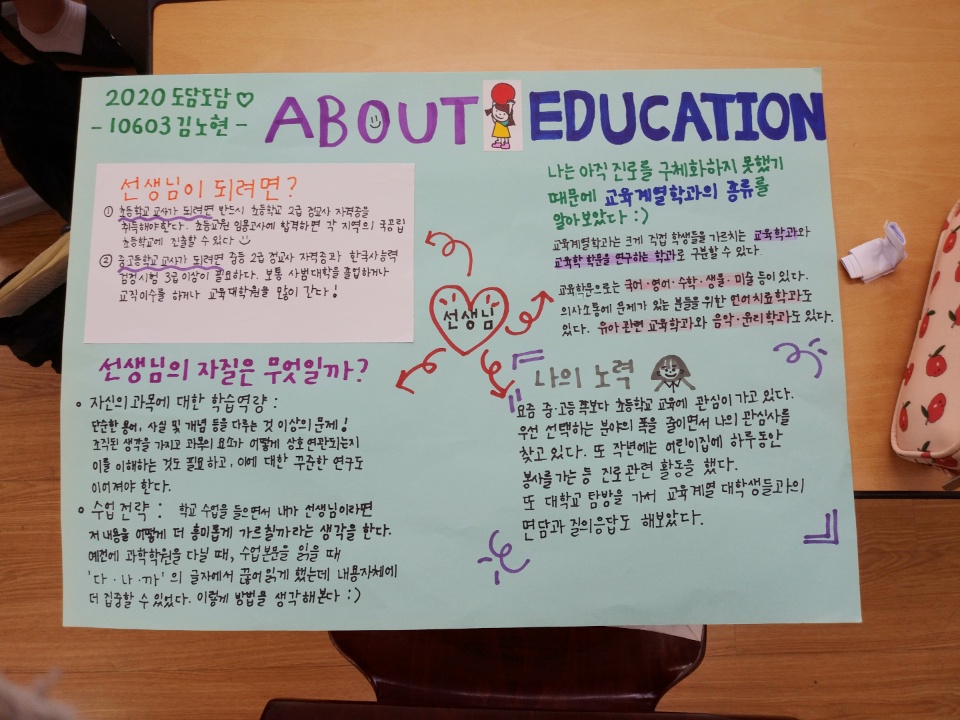 2020 도담도담♡
- 10603 김노현 -
ABOUT EDUCATION
선생님이 되려면?
① 초등학교 교사가 되려면 반드시 초등학교 2급 정교사 자격증을
취득해야한다. 초등교원 임용고사에 합격하면 각 지역의 국공립
초등학교에 진출할 수 있다
② 중고등학교 교사가 되려면 중등 2급 정교사 자격증과 한국사능력
검정시험 3급 이상이 필요하다. 보통 사범대학을 졸업하거나
교직이수를 하거나 교육대학원을 많이 간다!
나는 아직 진로를 구체화하지 못했기
때문에 교육계열학과의 종류를
알아보았다 :)
교육계열학과는 크게 직접 학생들을 가르치는 교육학과와
교육학 학문을 연구하는 학과로 구분할 수 있다.
교육학문으로는 국어·영어·수학·생물·미술 등이 있다.
의사소통에 문제가 있는 분들을 위한 언어치료학과도
있다. 유아 관련 교육학과와 음악·윤리학과도 있다.
선생님
선생님의 자질은 무엇일까?
• 자신의 과목에 대한 학습역량 :
단순한 용어, 사실 및 개념 등을 다루는 것 이상의 문제!
조직된 생각을 가지고 과목의 요소가 어떻게 상호연관되는지
이를 이해하는 것도 필요하고, 이에 대한 꾸준한 연구도
이어져야 한다.
• 수업 전략 : 학교 수업을 들으면서 내가 선생님이라면
저 내용을 어떻게 더 흥미롭게 가르칠까라는 생각을 한다.
예전에 과학학원을 다닐 때, 수업본문을 읽을 때
'다·나·까'의 글자에서 끊어읽게 했는데 내용자체에
더 집중할 수 있었다. 이렇게 방법을 생각해본다 :)
나의 노력
요즘 중·고등 쪽보다 초등학교 교육에 관심이 가고 있다.
우선 선택하는 분야의 폭을 줄이면서 나의 관심사를
찾고 있다. 또 작년에는 어린이집에 하루동안
봉사를 가는 등 진로관련 활동을 했다.
또 대학교 탐방을 가서 교육계열 대학생들과의
면담과 질의응답도 해보았다.